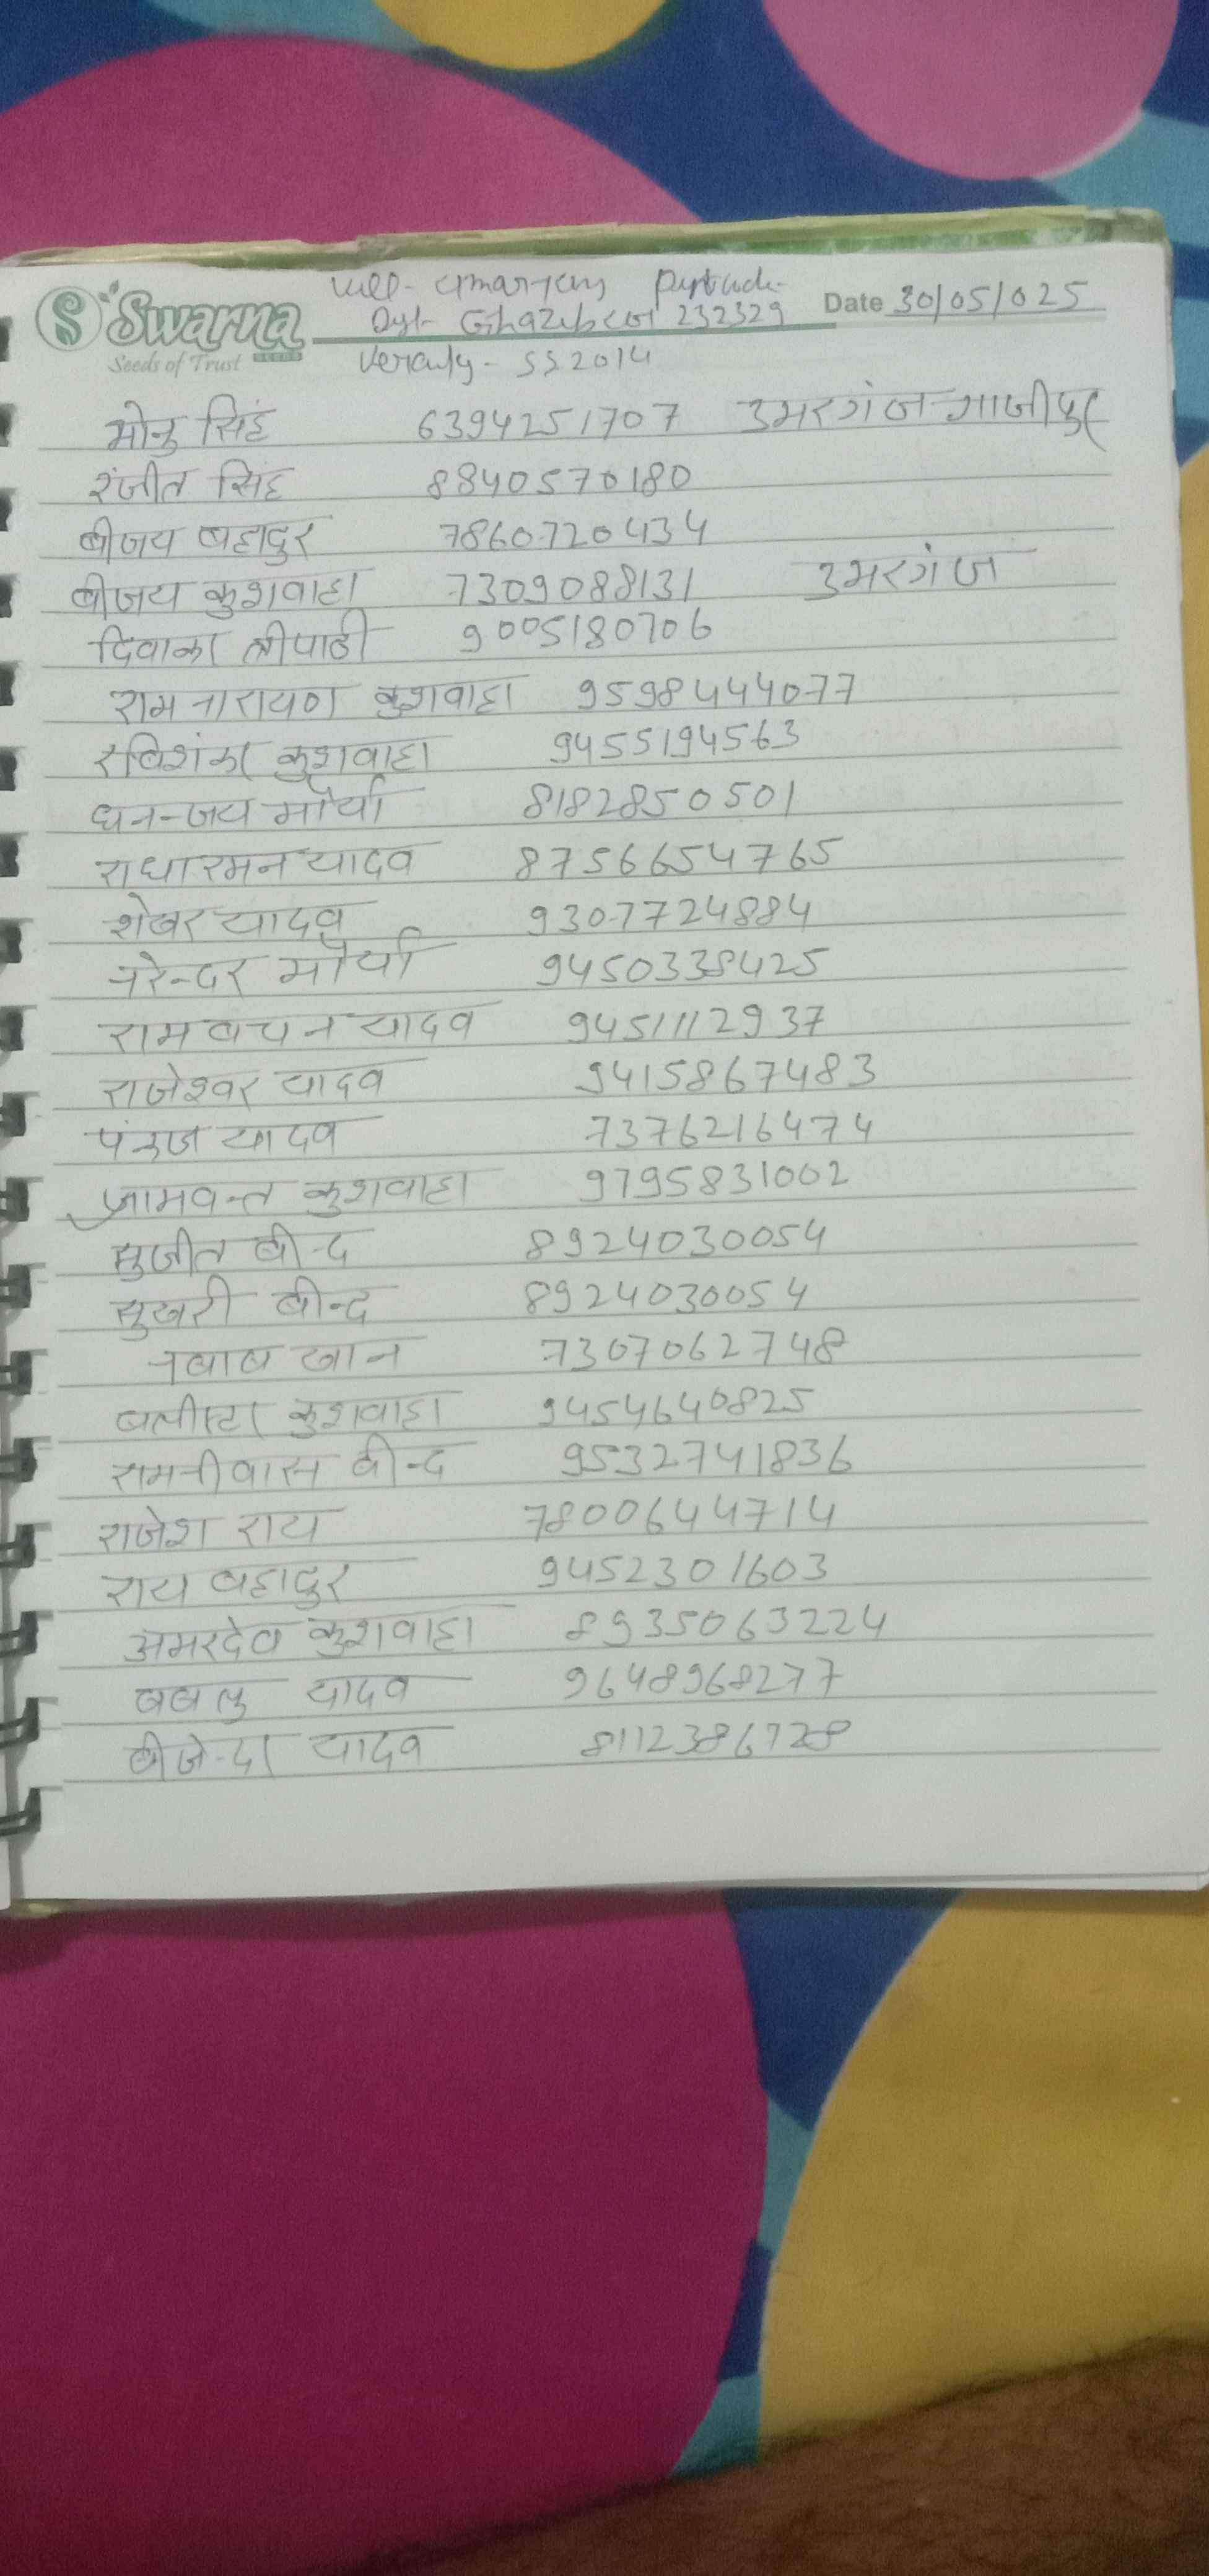 Swarna
Seeds of Trust SEEDS
vill-
Dist- 232329
Date 30/05/025
- SS2014
मोनु सिंह 6394251707 उमरगंज-गाजीपुर
रंजीत सिंह 8840570180
बीजय बहादुर 7860720434
बीजय कुशवाहा 7309088131 उमरगंज
दिवाकर त्रीपाठी 9005180706
रामनारायण कुशवाहा 9598444077
रविशंकर कुशवाहा 9455194563
धनन्जय मौर्या 8182850501
राधारमन यादव 8756654765
शेखर यादव 9307724884
नरेन्दर मौर्या 9450338425
रामबचन यादव 9451112937
राजेश्वर यादव 9415867483
पंकज यादव 7376216474
जामवन्त कुशवाहा 9795831002
सुजीत बीन्द 8924030054
सुखरी बीन्द 8924030054
नबाब खान 7307062748
कुशवाहा 9454640825
रामनीवास बीन्द 9532741836
राजेश राय 7800644714
राय बहादुर 9452301603
अमरदेव कुशवाहा 8935063224
बबलु यादव 9648968277
बीजेन्दर यादव 8112386728